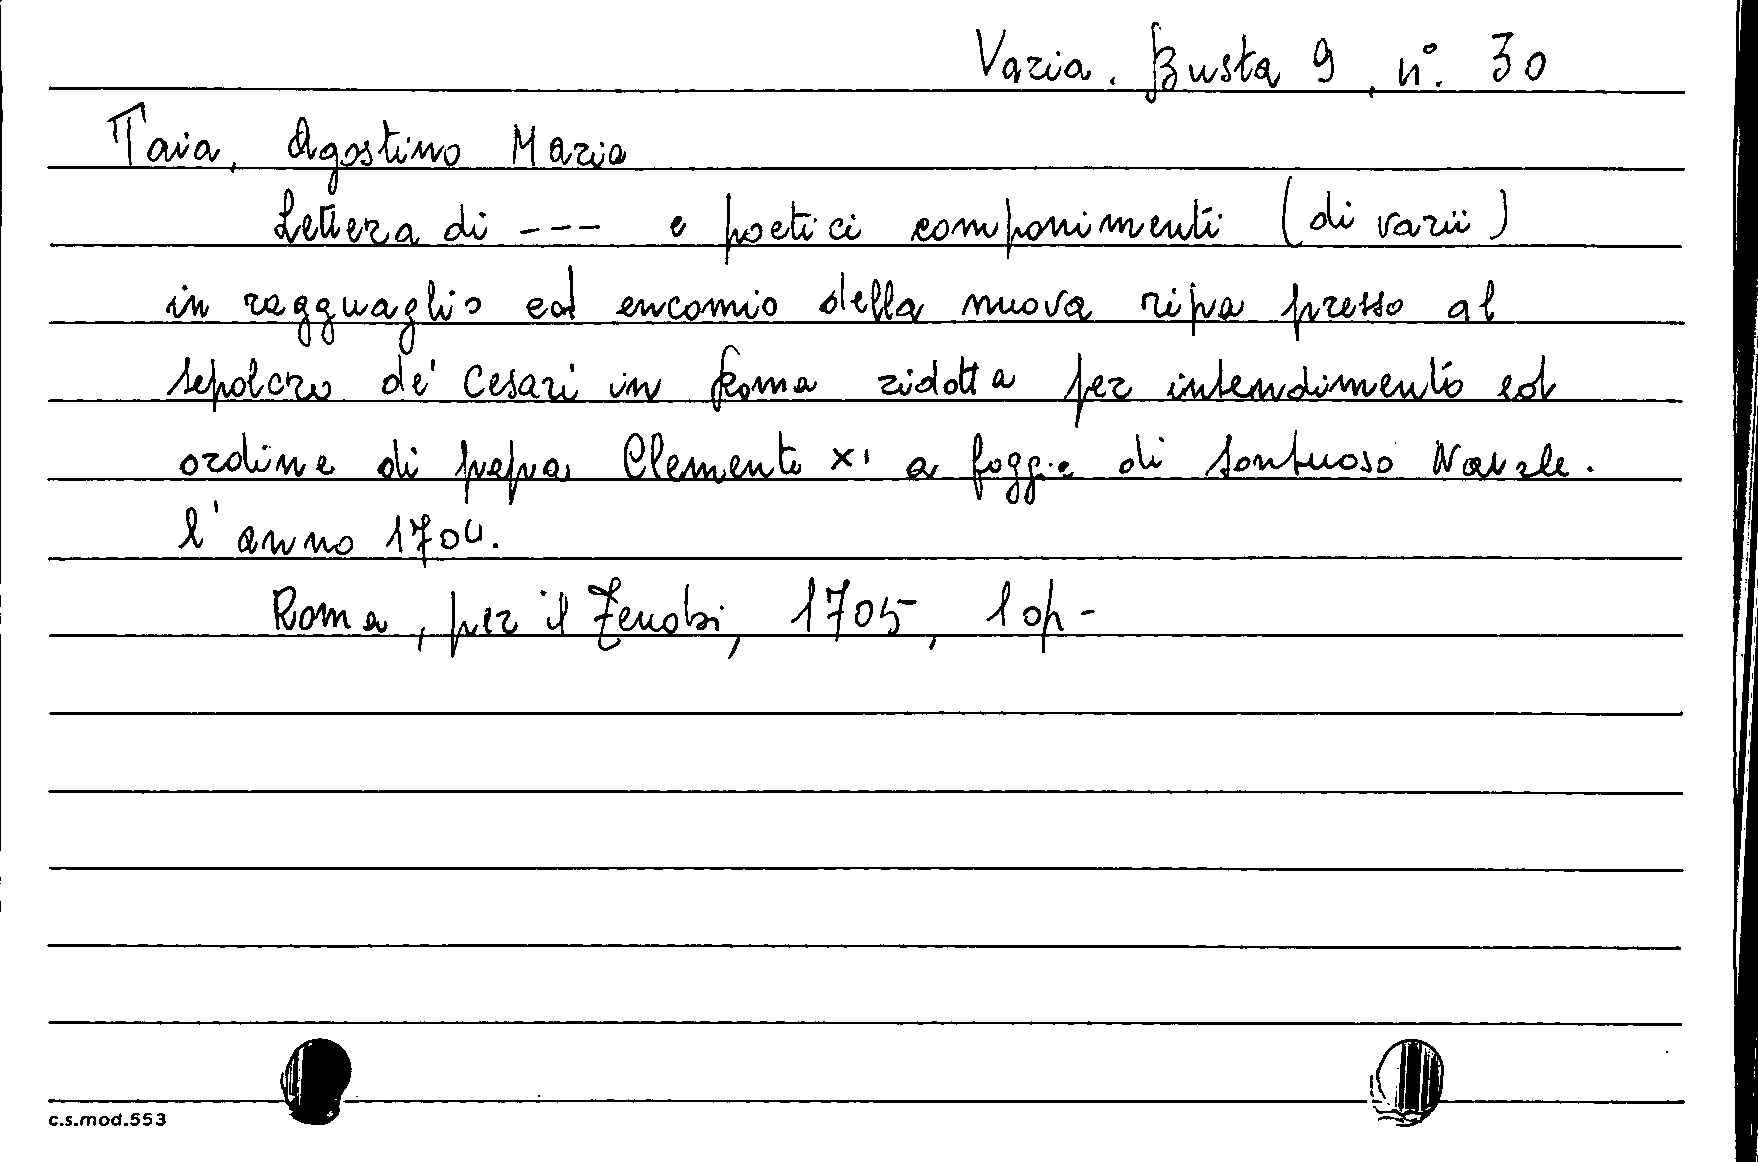 Varia. Busta 9, n°. 30
Taia, Agostino Maria
Lettera di --- e poetici componimenti (di varii)
in ragguaglio ed encomio della nuova ripa presso al
sepolcro de' Cesari in Roma ridotta per intendimento ed
ordine di papa Clemente XI a foggia di sontuoso Navale.
l'anno 1704.
Roma, per il Zenobi, 1705, 1 op-
c.s.mod.553